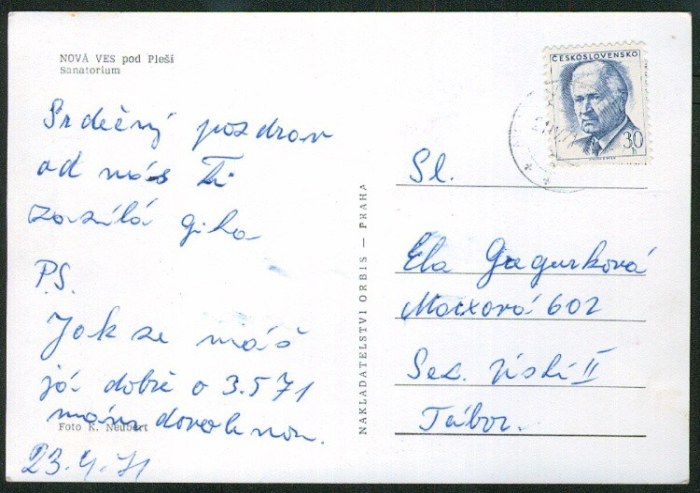 NOVÁ VES pod Pleší
Sanatorium
Srdečný pozdrav
od nás Ti
zasílá
P.S.
Jak se máš
já dobře o 3.5 71
mám dovolenou.
Foto K. Neubert
23.4.71
NAKLADATELSTVÍ ORBIS — PRAHA
ČESKOSLOVENSKO
30
h
Sl.
Ela Gagurková
Marxová 602
Sez. Ústí II
Tábor.